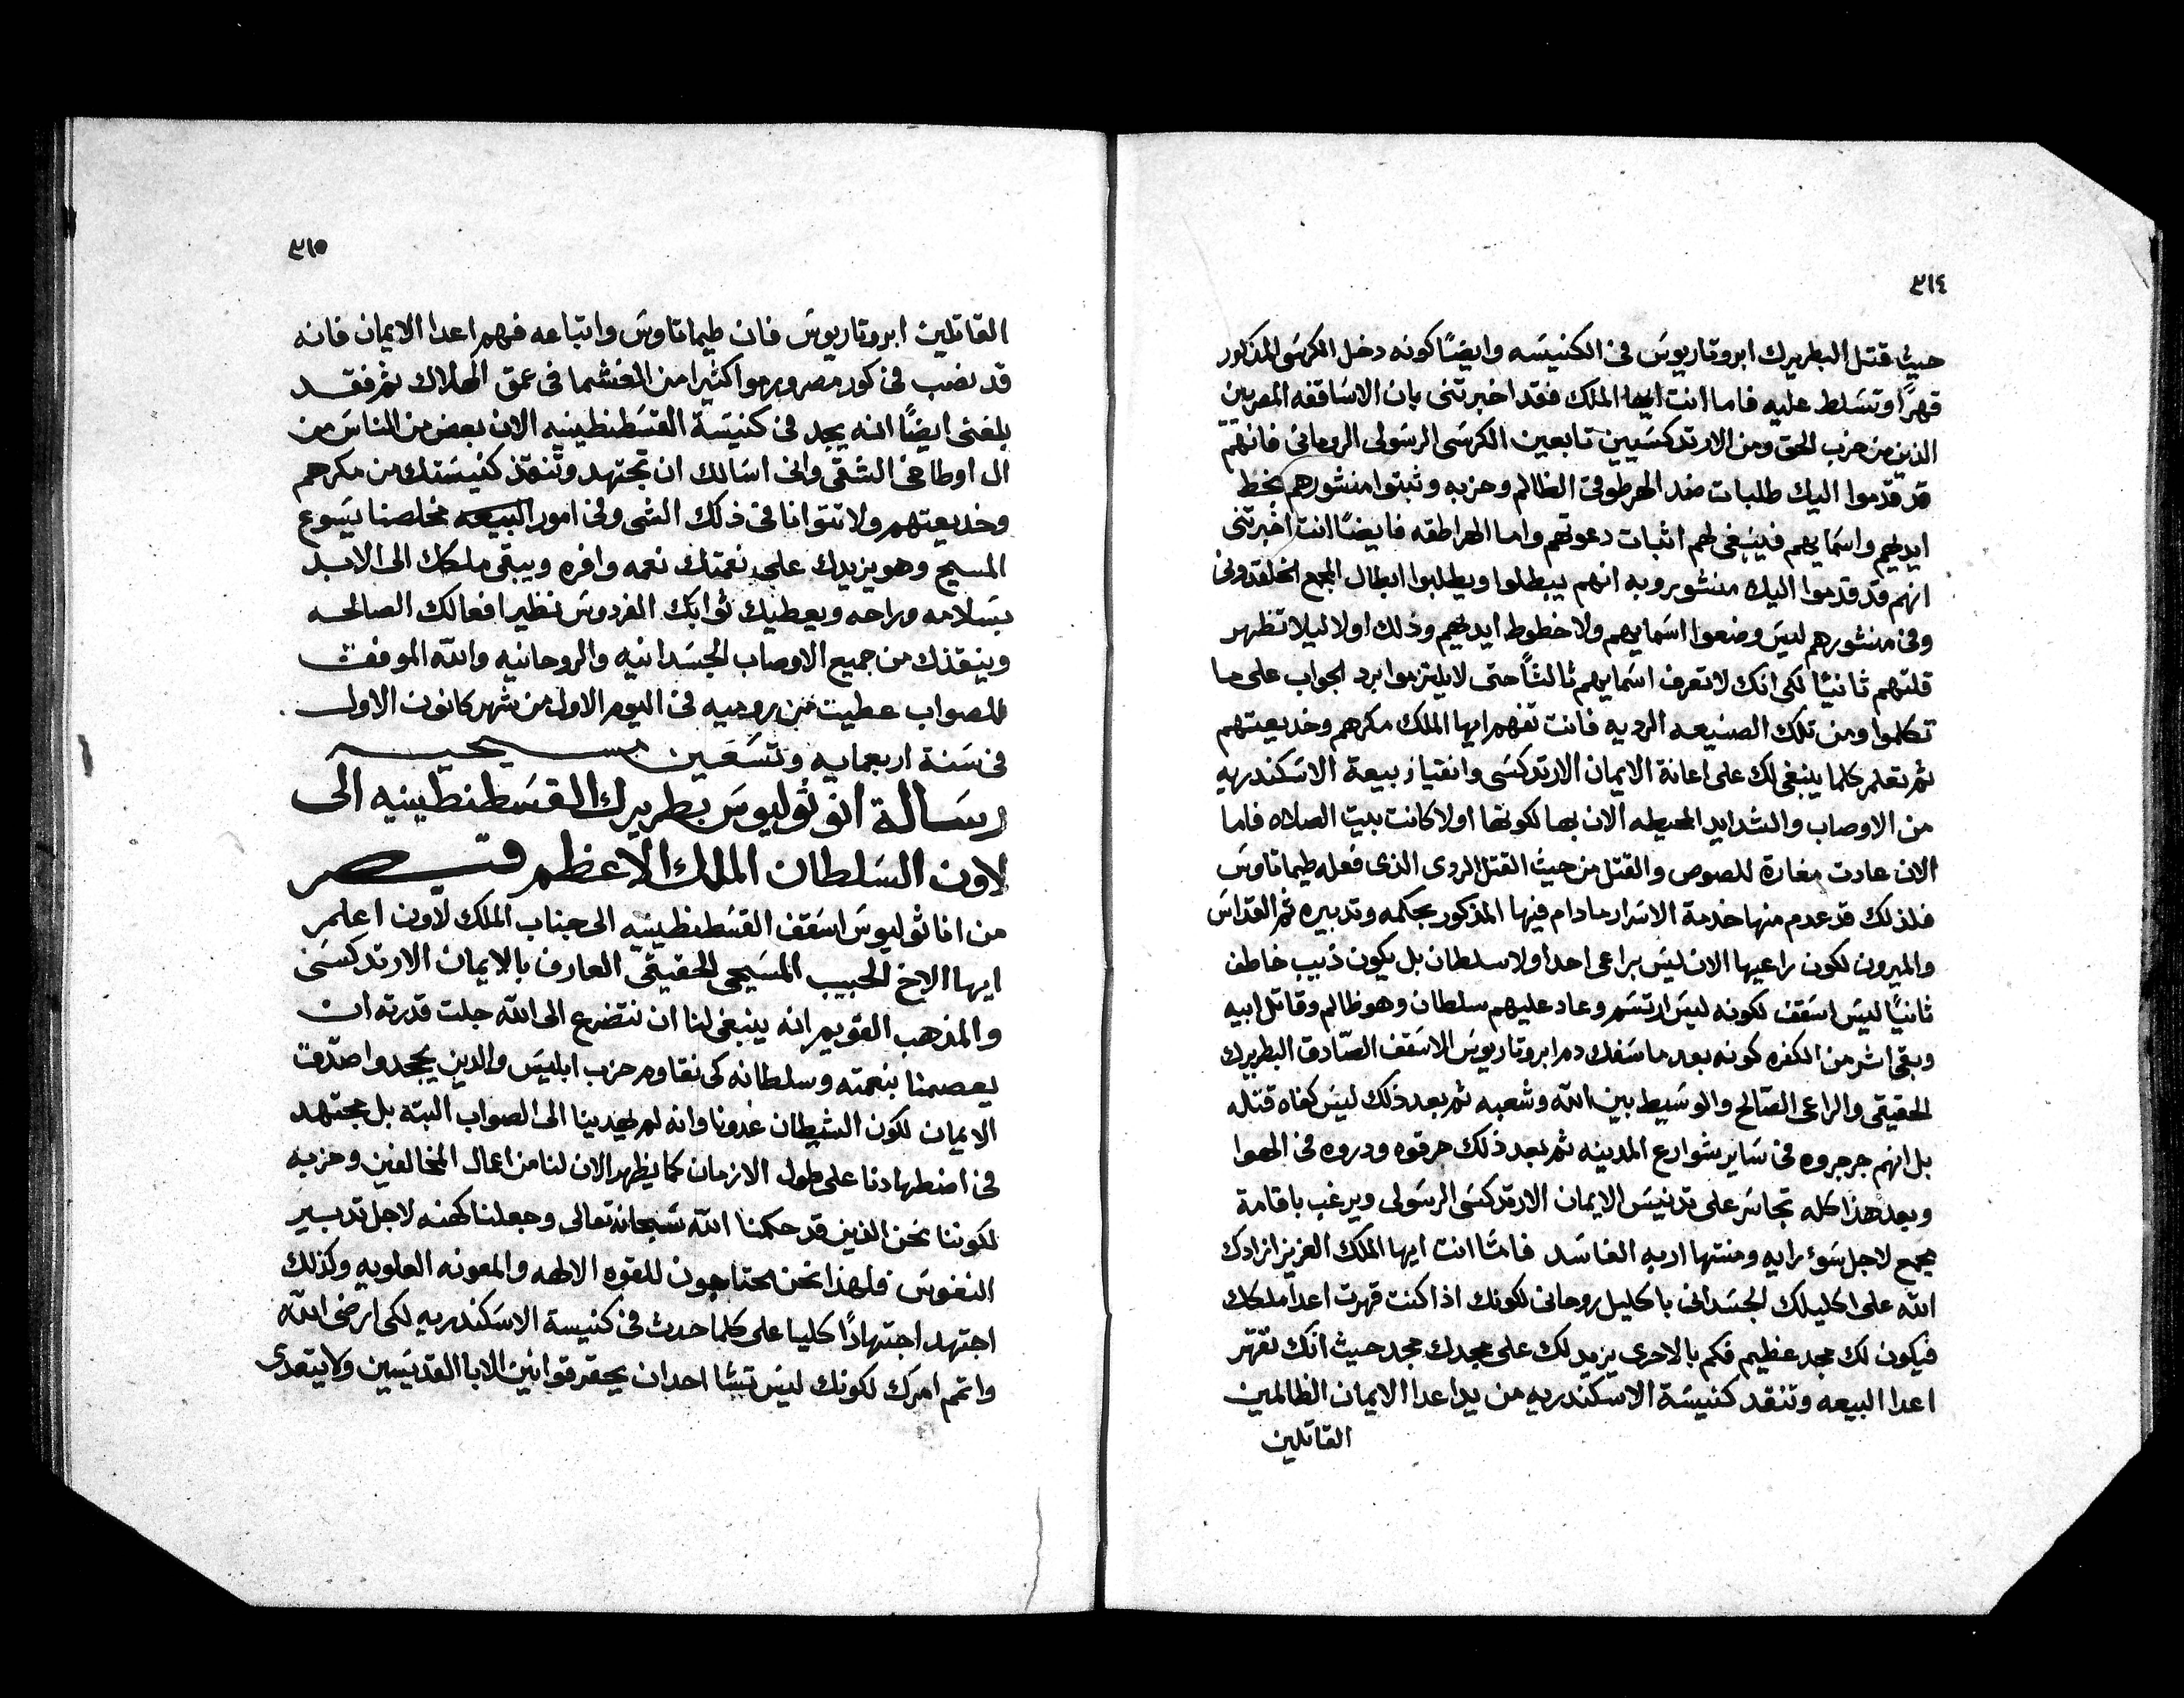 ٣١٤
حيث قتل البطريرك ابروتاريوس في الكنيسه وايضًا كونه دخل الكرسي المذكور
قهرًا وتسلط عليه فاما انت ايها الملك فقد اخبرتني بان الاساقفه المصريين
الذين من حزب الحق ومن الارتدكسيين تابعين الكرسي الرسولي الروماني فانهم
قد قدموا اليك طلبات ضد الهرطوقي الظالم وحزبه وثبتوا منشورهم بخط
ايديهم واسمايهم فينبغي لهم اثبات دعوتهم واما الهراطقه فايضًا انت اخبرتني
انهم قد قدموا اليك منشور وبه انهم يبطلوا ويطلبوا ابطال المجمع الخلقدوني
وفي منشورهم ليس وضعوا اسمايهم ولا خطوط ايديهم وذلك اولا ليلا تظهر
قلتهم ثانيًا لكي انك لا تعرف اسمايهم ثالثًا حتى لا يلتزموا برد الجواب على ما
تكلموا ومن تلك الصنيعه الرديه فانت تفهم ايها الملك مكرهم وخديعتهم
ثم تعلم كلما ينبغي لك على اعانة الايمان الارتدكسي وانقياذ بيعة الاسكندريه
من الاوصاب والشدايد المحيطه الان بها لكونها اولا كانت بيت الصلاه فاما
الان عادت مغارة للصوص والقتل من حيث القتل الردي الذي فعله طيماتاوس
فلذلك قد عدم منها خدمة الاسرار مادام فيها المذكور بحكمه وتدبيره ثم القداس
والميرون لكون راعيها الان ليس براعي احدا ولا سلطان بل يكون ذيب خاطف
ثانيًا ليس اسقف لكونه ليس ارتسم وعاد عليهم سلطان وهو ظالم وقاتل ابيه
وبقى اشر من الكفره كونه بعد ما سفك دم ابروتاريوس الاسقف الصادق البطريرك
الحقيقي والراعي الصالح والوسيط بين الله وشعبه ثم بعد ذلك ليس كفاه قتله
بل انهم جرجروه في ساير شوارع المدينه ثم بعد ذلك حرقوه ودروه في الهوا
وبعد هذا كله تجاسر على تدنيس الايمان الارتدكسي الرسولي ويرغب باقامة
مجمع لاجل سوء رايه ومنتها اربه الفاسد فامّا انت ايها الملك العزيز ان زادك
الله على اكليلك الجسداني باكليل روحاني لكونك اذا كنت قهرت اعدا ملكك
فيكون لك مجد عظيم فكم بالاحرى يزيد لك على مجدك مجد حيث انك تقهر
اعدا البيعه وتنقد كنيسة الاسكندريه من يد اعدا الايمان الظالمين
القاتلين
٣١٥
القاتلين ابروتاريوس فان طيماتاوس واتباعه فهم اعدا الايمان فانه
قد نصب في كور مصر ويرموا كثيرا من الغشما في عمق الهلاك ثم فقد
بلغني ايضًا انه يجد في كنيسة القسطنطينيه الان بعض من الناس من
ال اوطاخي الشقي واني اسالك ان تجتهد وتنقذ كنيستك من مكرهم
وخديعتهم ولا تتوانا في ذلك الشي وفي امور البيعه مخلصنا يسوع
المسيح وهو يزيدك على نعمتك نعمه وافره ويبقى ملكك الى الابد
بسلامه وراحه ويعطيك ثوابك الفردوس نظير افعالك الصالحه
وينقذك من جميع الاوصاب الجسدانيه والروحانيه والله الموفق
للصواب عطيت من روميه في اليوم الاول من شهر كانون الاول
في سنة اربعمايه وتسعين مسيحيه
رسالة انوثوليوس بطريرك القسطنطينيه الى
لاون السلطان الملك الاعظم قيصر
من اناثوليوس اسقف القسطنطينيه الى جناب الملك لاون اعلم
ايها الاخ الحبيب المسيحي الحقيقي العارف بالايمان الارتدكسي
والمذهب القويم انه ينبغي لنا ان نتضرع الى الله جلت قدرته ان
يعصمنا بنعمته وسلطانه كي نقاوم حزب ابليس والدين يجحدوا صدق
الايمان لكون الشيطان عدونا وانه لم يهدينا الى الصواب البته بل مجتهد
في اضطهادنا على طول الازمان كما يظهر الان لنا من اعمال المخالفين وحزبه
لكوننا نحن الذين قد حكمنا الله سبحانه تعالى وجعلنا كهنه لاجل تدبير
النفوس فلهذا نحن محتاجون للقوه الالهه والمعونه العلويه وكذلك
اجتهد اجتهادًا كليا على كلما حدث في كنيسة الاسكندريه لكي ارضي الله
واتم امرك لكونك ليس تشا احد ان يحقر قوانين الابا القديسين ولا يتعدى